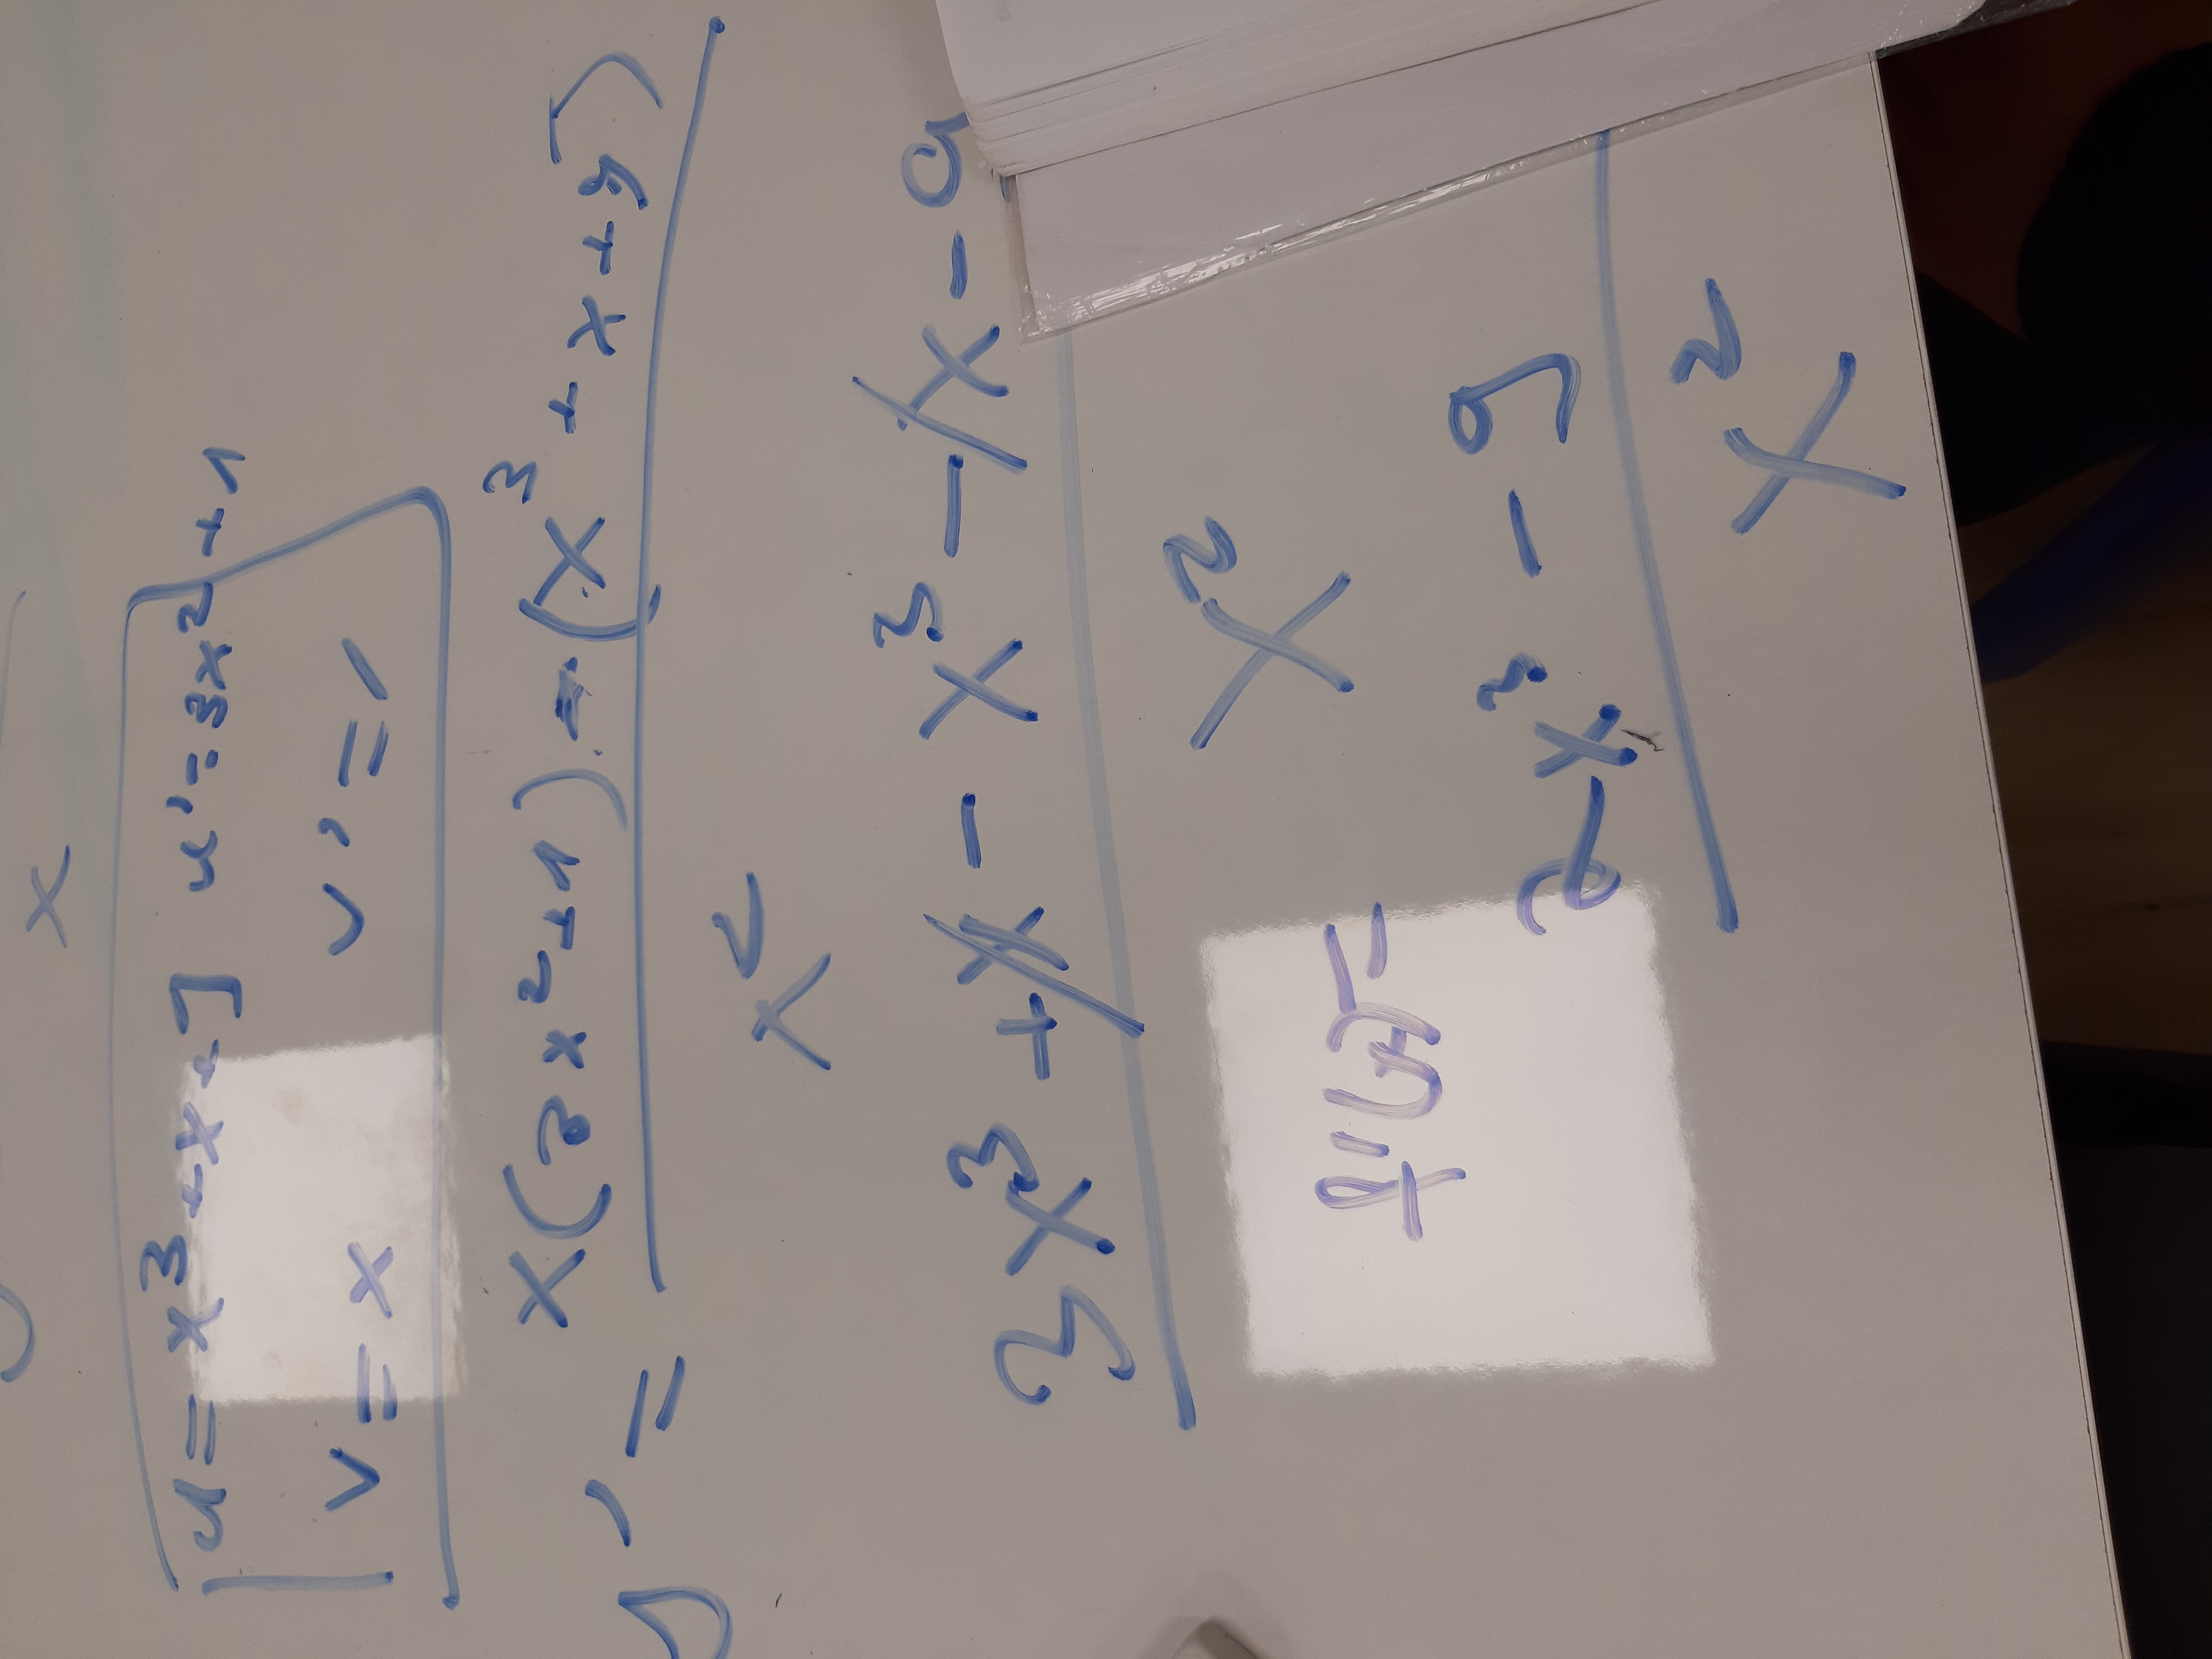 x
u = x³ + x + 9 u' = 3x² + 1
v = x v' = 1
y' = x(3x² + 1) - (x³ + x + 9)
x²
3x³ + x - x³ - x - 9
x²
f'(x) = 2x³ - 9
x²